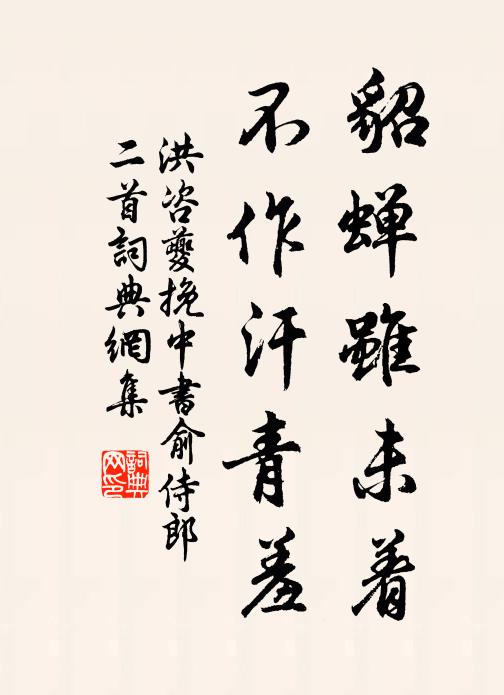 貂蝉雖未着
不作汗青羞
洪咨夔挽中書俞侍郎
二首詞典網集
詞典網印